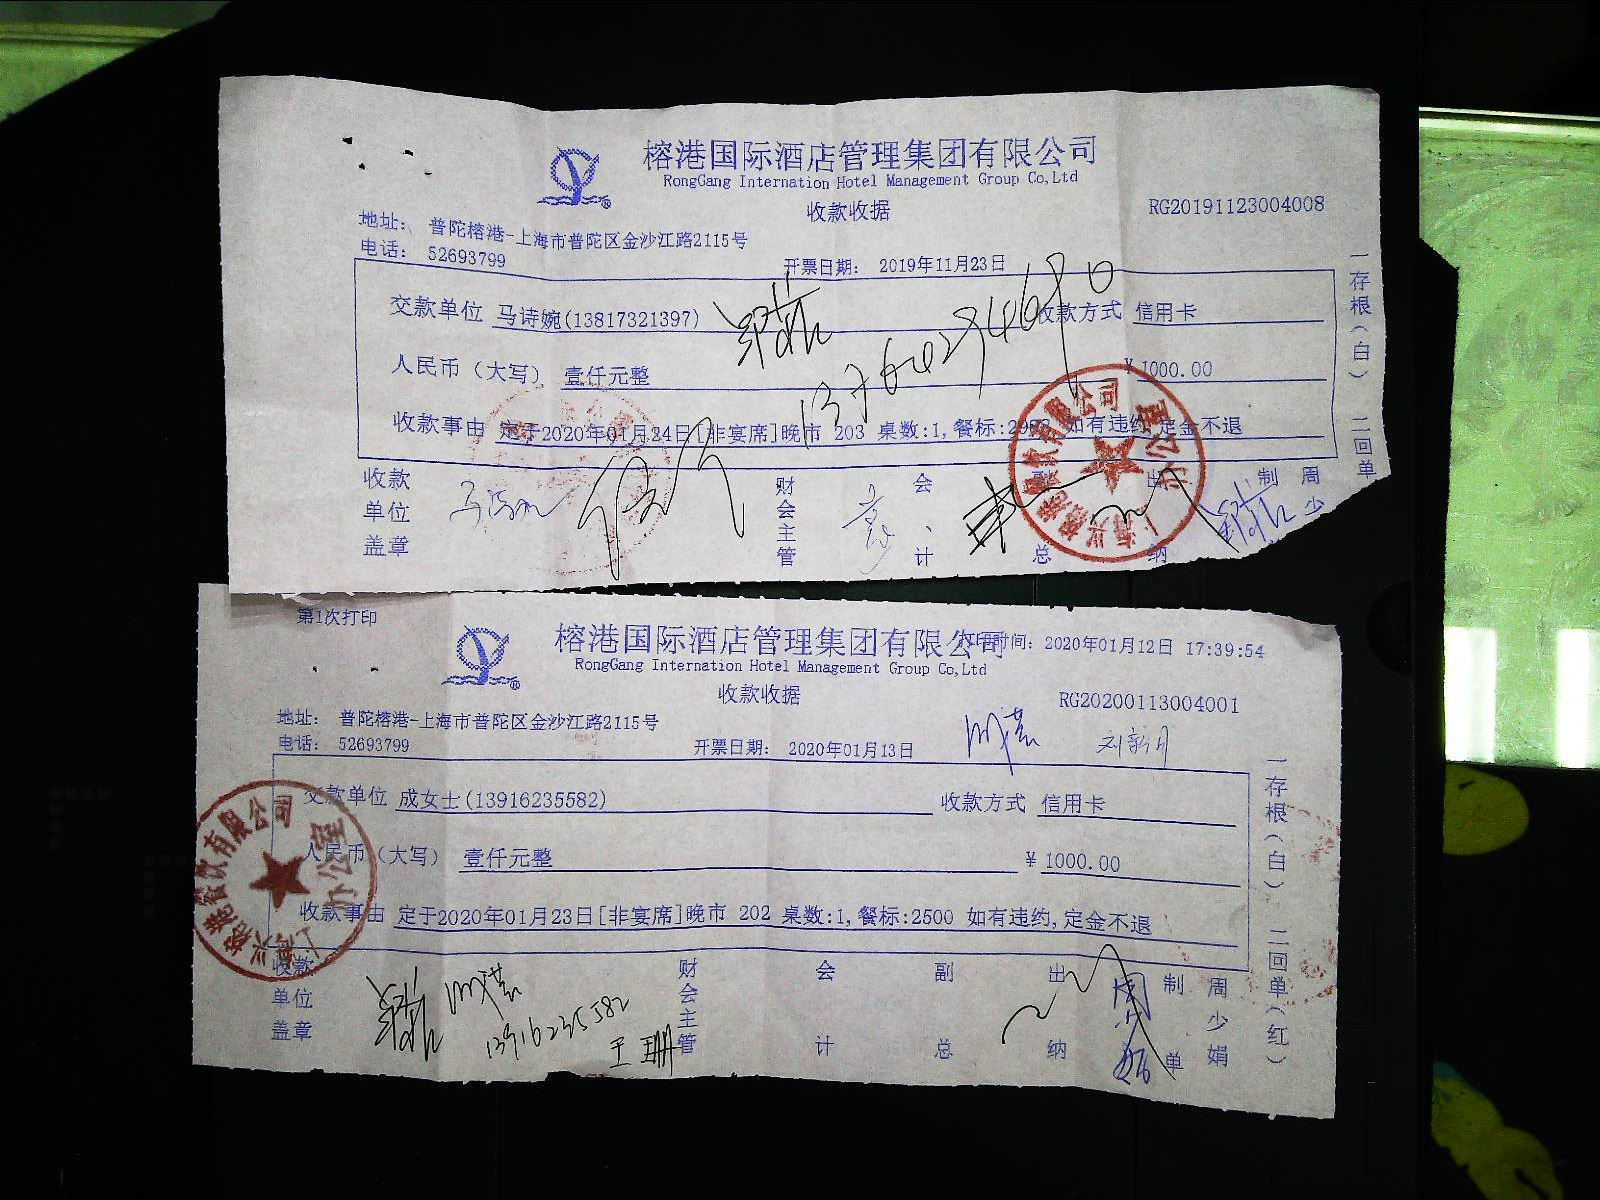 榕港国际酒店管理集团有限公司
RongGang Internation Hotel Management Group Co,Ltd
收款收据
RG20191123004008
地址： 普陀榕港-上海市普陀区金沙江路2115号
电话： 52693799
开票日期： 2019年11月23日
交款单位 马诗婉(13817321397) 收款方式 信用卡
人民币（大写） 壹仟元整 ￥ 1000.00
收款事由 定于2020年01月24日[非宴席]晚市 203 桌数:1,餐标: 如有违约,定金不退
收款单位盖章 财会主管 会计 总 出纳 制 周少
一存根（白） 二回单
第1次打印
榕港国际酒店管理集团有限公司
打印时间: 2020年01月12日 17:39:54
RongGang Internation Hotel Management Group Co,Ltd
收款收据
RG20200113004001
地址： 普陀榕港-上海市普陀区金沙江路2115号
电话： 52693799
开票日期： 2020年01月13日
刘新月
交款单位 成女士(13916235582) 收款方式 信用卡
人民币（大写） 壹仟元整 ￥ 1000.00
收款事由 定于2020年01月23日[非宴席]晚市 202 桌数:1,餐标:2500 如有违约,定金不退
收款单位盖章 财会主管 会计 副总 出纳 制单 周少娟
13916235582
王珊
一存根（白） 二回单（红）